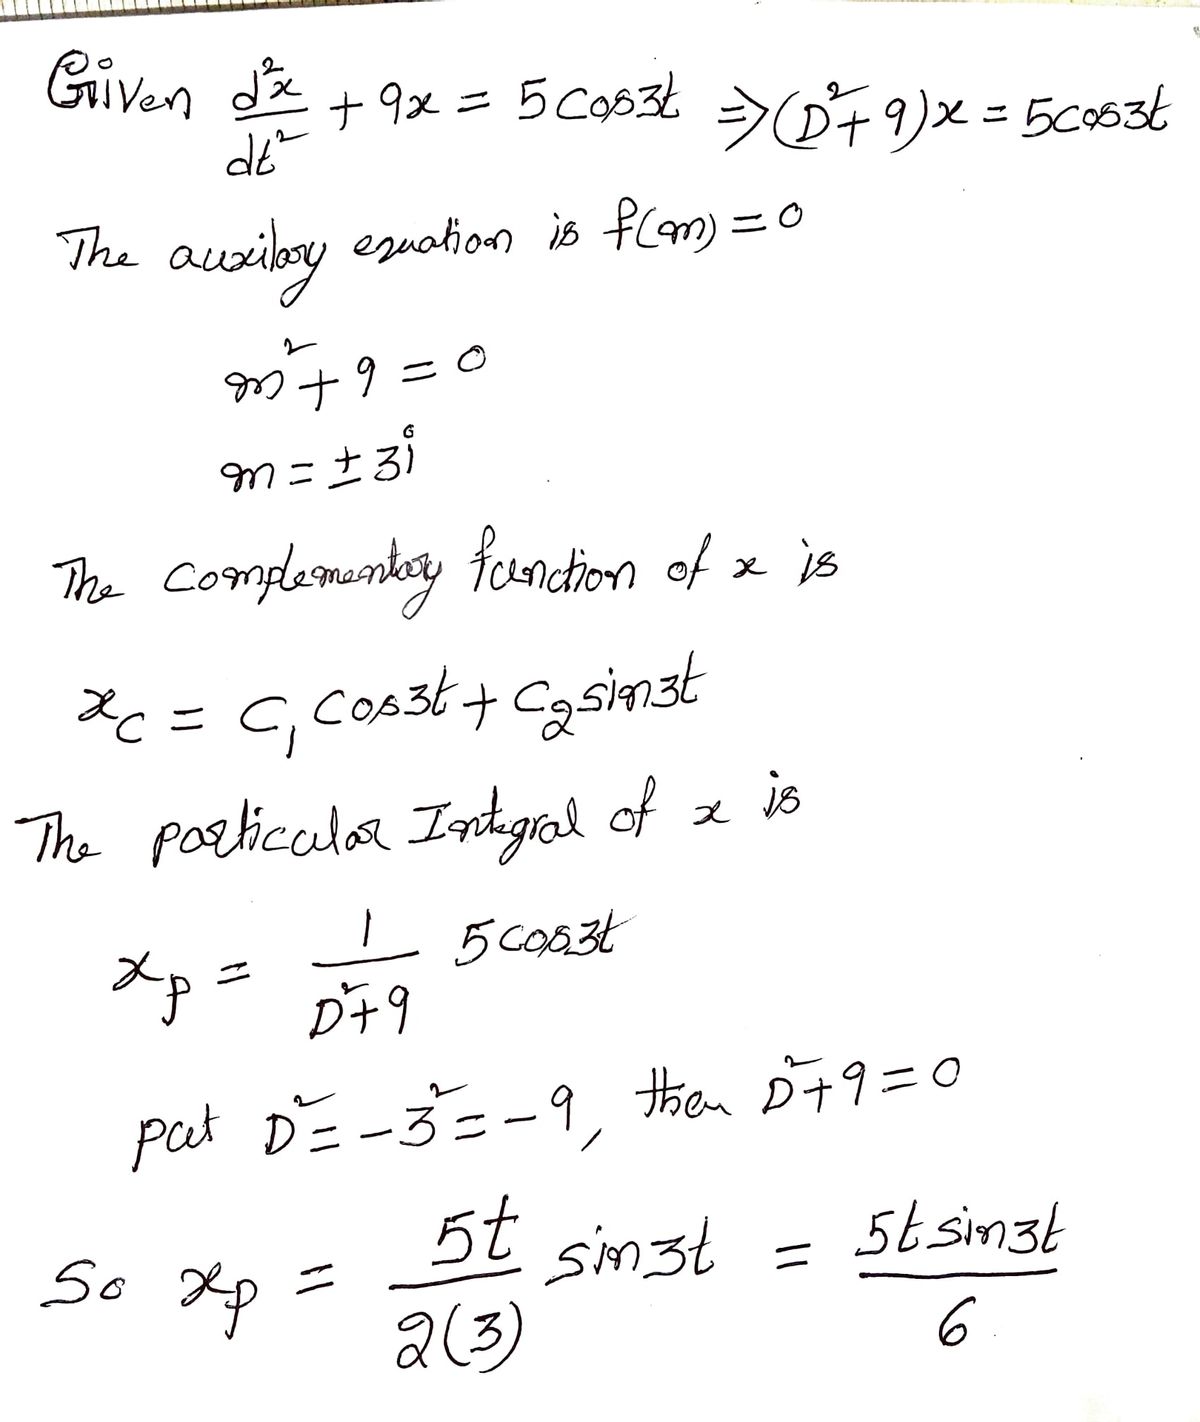 Given d²x/dt² + 9x = 5cos3t ⇒ (D²+9)x = 5cos3t
The auxilary equation is f(m) = 0
m² + 9 = 0
m = ± 3i
The complementary function of x is
x_c = C₁ cos3t + C₂ sin3t
The particular Integral of x is
x_p = 1/(D²+9) 5cos3t
put D² = -3² = -9, then D²+9 = 0
So x_p = 5t/2(3) sin3t = 5t sin3t/6